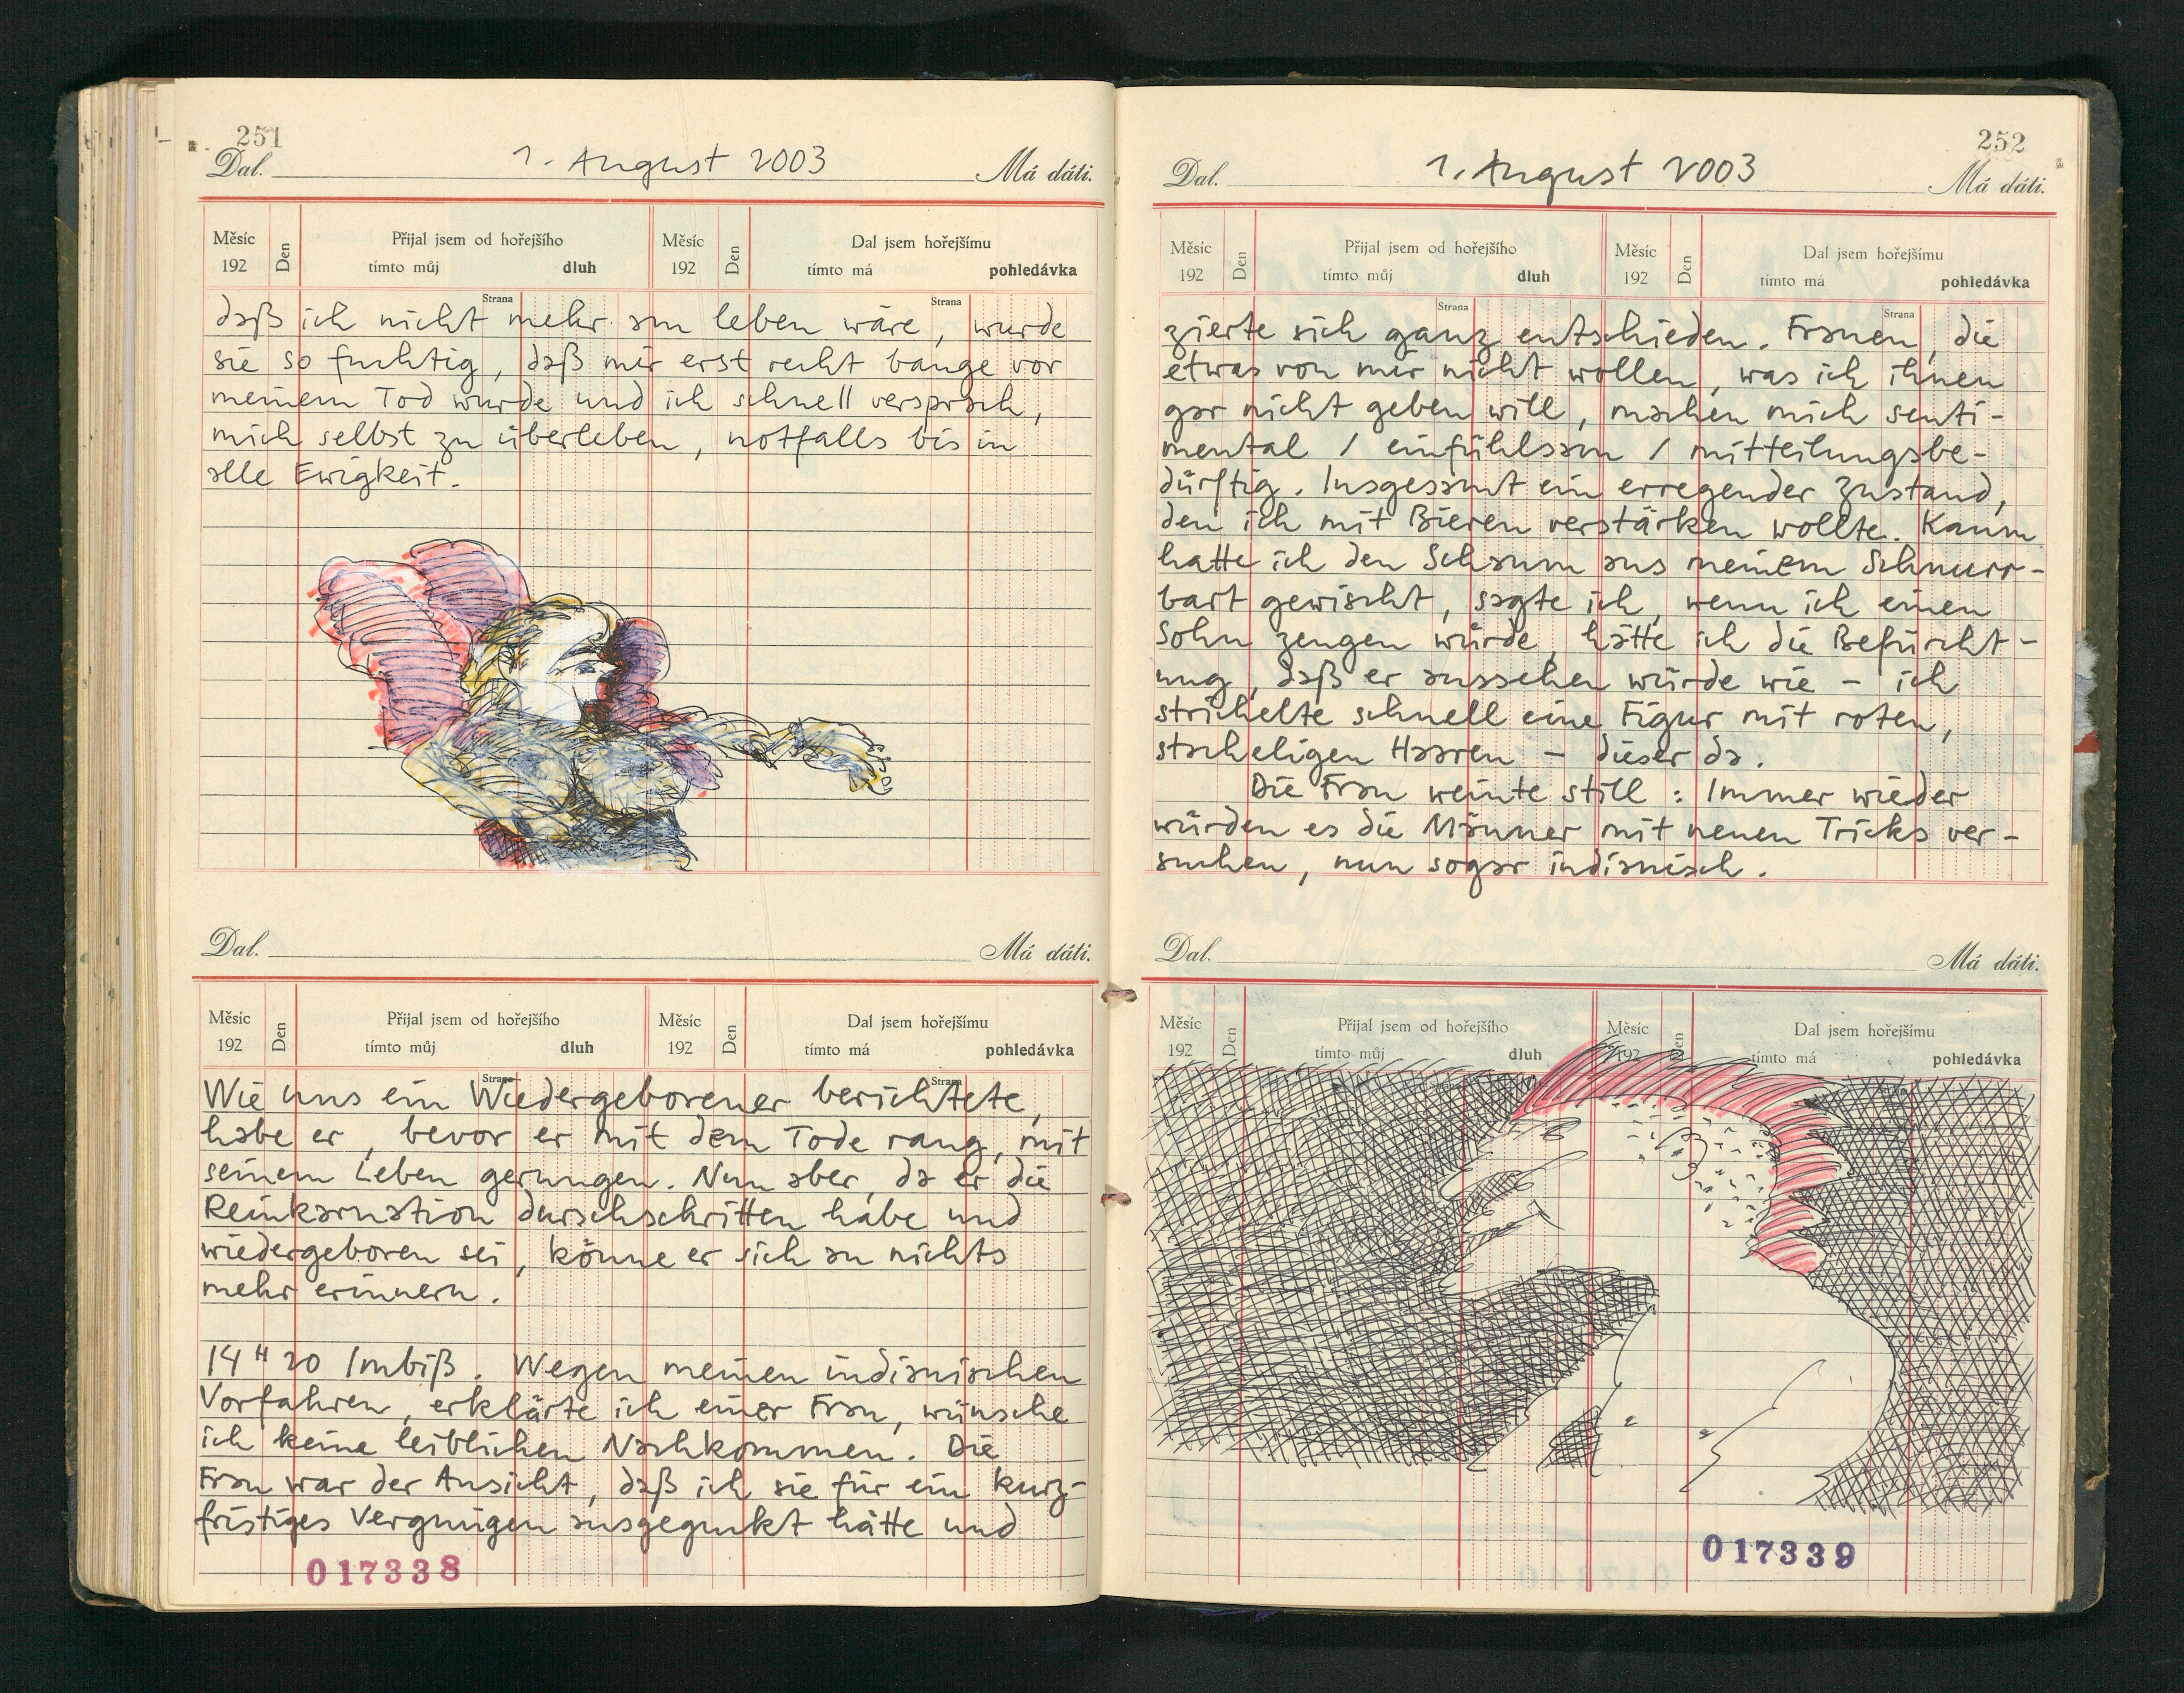 251
1. August 2003
Dal. Má dáti.
Měsíc 192 Den Přijal jsem od hořejšího Měsíc 192 Den Dal jsem hořejšímu
tímto můj dluh tímto má pohledávka
Strana Strana
daß ich nicht mehr am leben wäre, wurde
sie so fuchtig, daß mir erst recht bange vor
meinem Tod wurde und ich schnell versprach,
mich selbst zu überleben, notfalls bis in
alle Ewigkeit.
Dal. Má dáti.
Měsíc 192 Den Přijal jsem od hořejšího Měsíc 192 Den Dal jsem hořejšímu
tímto můj dluh tímto má pohledávka
Strana Strana
Wie uns ein Wiedergeborener berichtete,
habe er, bevor er mit dem Tode rang, mit
seinem Leben gerungen. Nun aber, da er die
Reinkarnation durschschritten habe und
wiedergeboren sei, könne er sich an nichts
mehr erinnern.
14 H 20 Imbiß. Wegen meinen indianischen
Vorfahren, erklärte ich einer Frau, wünsche
ich keine leiblichen Nachkommen. Die
Frau war der Ansicht, daß ich sie für ein kurz-
fristiges Vergnügen ausgeguckt hätte und
017338
252
1. August 2003
Dal. Má dáti.
Měsíc 192 Den Přijal jsem od hořejšího Měsíc 192 Den Dal jsem hořejšímu
tímto můj dluh tímto má pohledávka
Strana Strana
zierte sich ganz entschieden. Frauen, die
etwas von mir nicht wollen, was ich ihnen
gar nicht geben will, machen mich senti-
mental / einfühlsam / mitteilungsbe-
dürftig. Insgesamt ein erregender Zustand,
den ich mit Bieren verstärken wollte. Kaum
hatte ich den Schaum aus meinem Schnurr-
bart gewischt, sagte ich, wenn ich einen
Sohn zeugen würde, hätte ich die Befürcht-
ung, daß er aussehen würde wie – ich
strichelte schnell eine Figur mit roten,
stacheligen Haaren – dieser da.
Die Frau weinte still: Immer wieder
würden es die Männer mit neuen Tricks ver-
suchen, nun sogar indianisch.
Dal. Má dáti.
Měsíc 192 Den Přijal jsem od hořejšího Měsíc 192 Den Dal jsem hořejšímu
tímto můj dluh tímto má pohledávka
017339